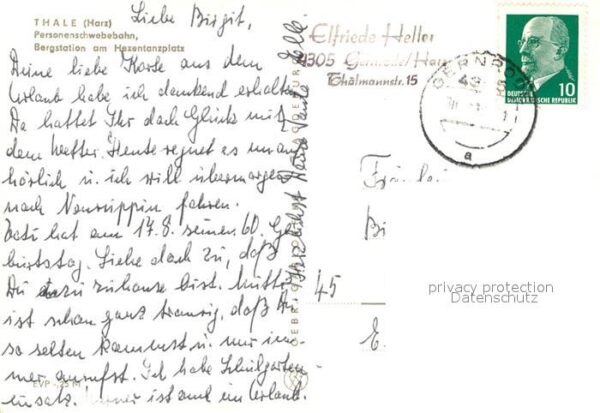 THALE (Harz)
Personenschwebebahn,
Bergstation am Hexentanzplatz
Liebe Birgit,
Deine liebe Karte aus dem
Urlaub habe ich dankend erhalten
Da hattet Ihr doch Glück mit
dem Wetter. Heute regnet es unauf
hörlich u. ich will übermorgen
nach Neuruppin fahren.
Vati hat am 17.8. seinen 60. Ge
burtstag. Siehe doch zu, daß
Du dazu zuhause bist. Mutti
ist schon ganz traurig, daß Du
so selten kommst u. nur im
mer anrufst. Ich habe Schulgarten
einsatz. ist auch im Urlaub.
Herzlichst Deine Tante Elli
EVP
Elfriede Heller
4305 Gernrode/Harz
Thälmannstr. 15
GERNRODE
43
a
DEUTSCHE
DEMOKRATISCHE REPUBLIK
10
Fräulein
Bi
45
E.
privacy protection
Datenschutz